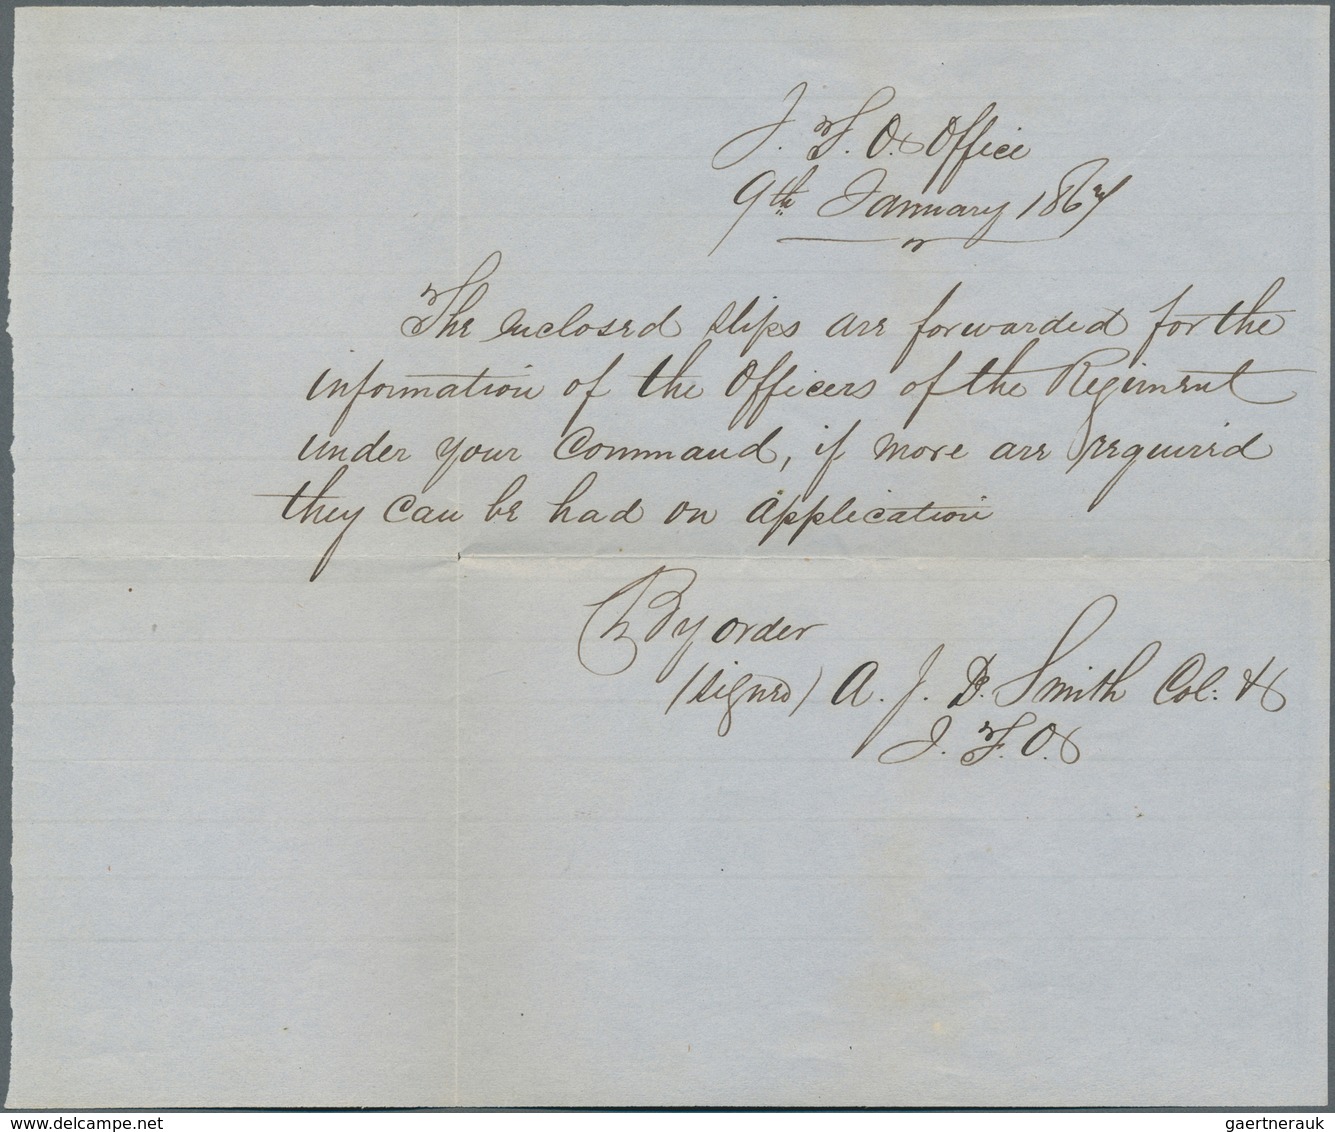 I. F. O. Office
9th January 1867
The enclosed slips are forwarded for the
information of the Officers of the Regiment
under your Command, if more are required
they can be had on application
By order
(signed) A. J. D. Smith Col: &
I. F. O.
gaertnerauk